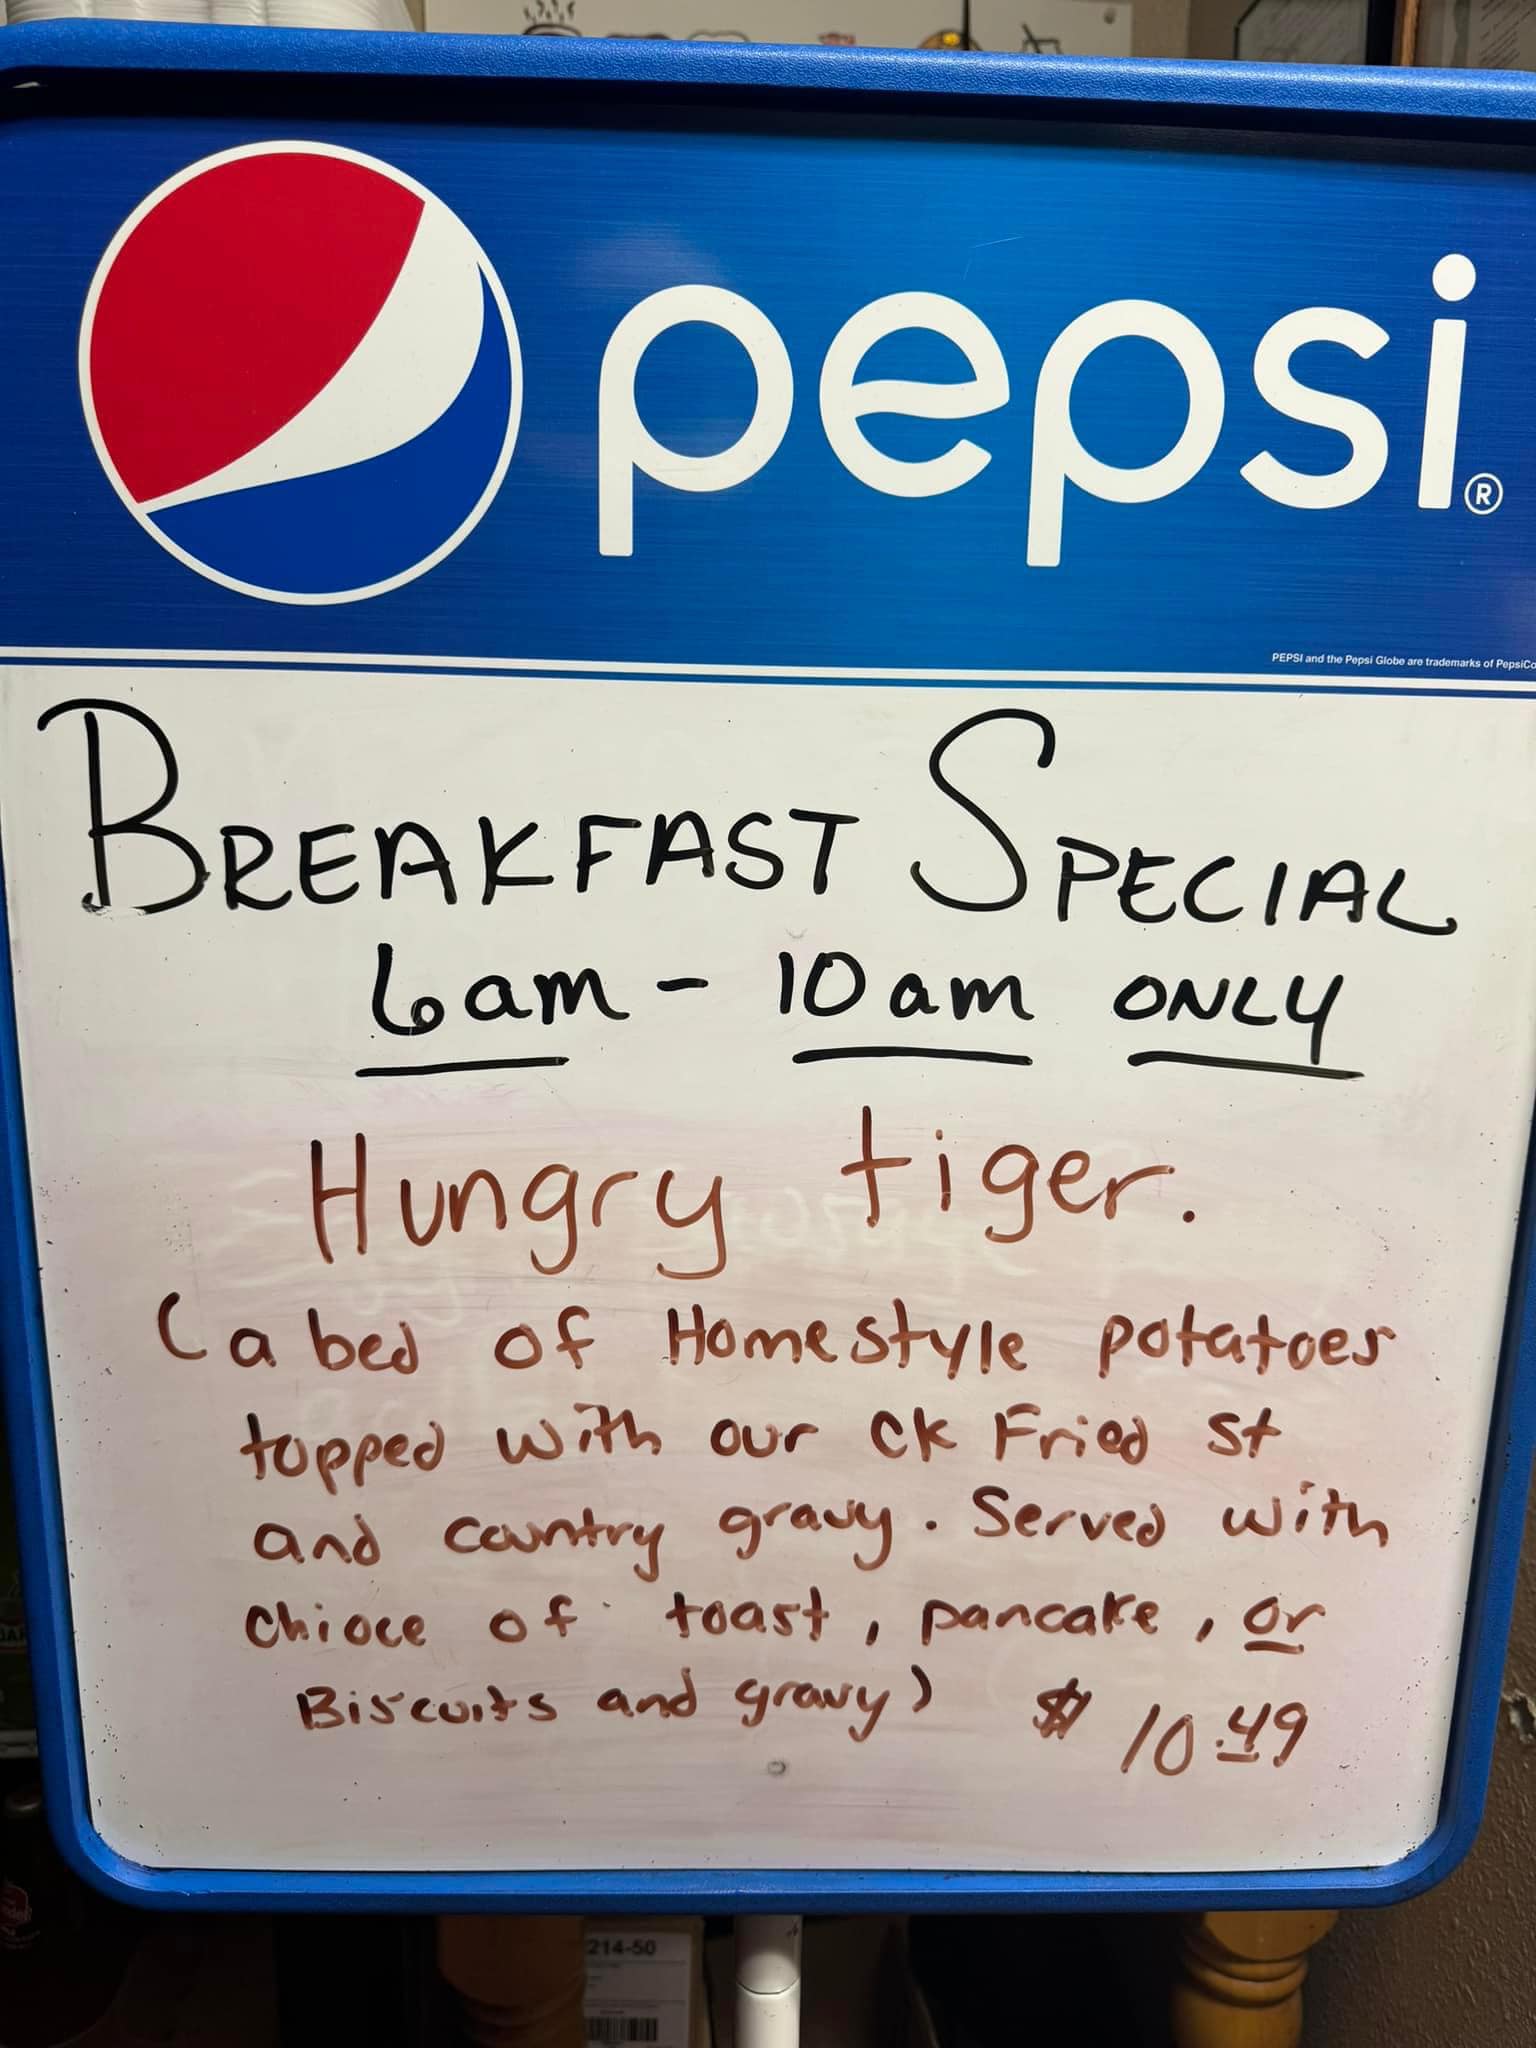 pepsi®
PEPSI and the Pepsi Globe are trademarks of PepsiCo
BREAKFAST SPECIAL
6am - 10am ONLY
Hungry tiger.
(a bed of Homestyle potatoes
topped with our CK Fried St
and country gravy. Served with
chioce of toast, pancake, or
Biscuits and gravy) $10.49
214-50